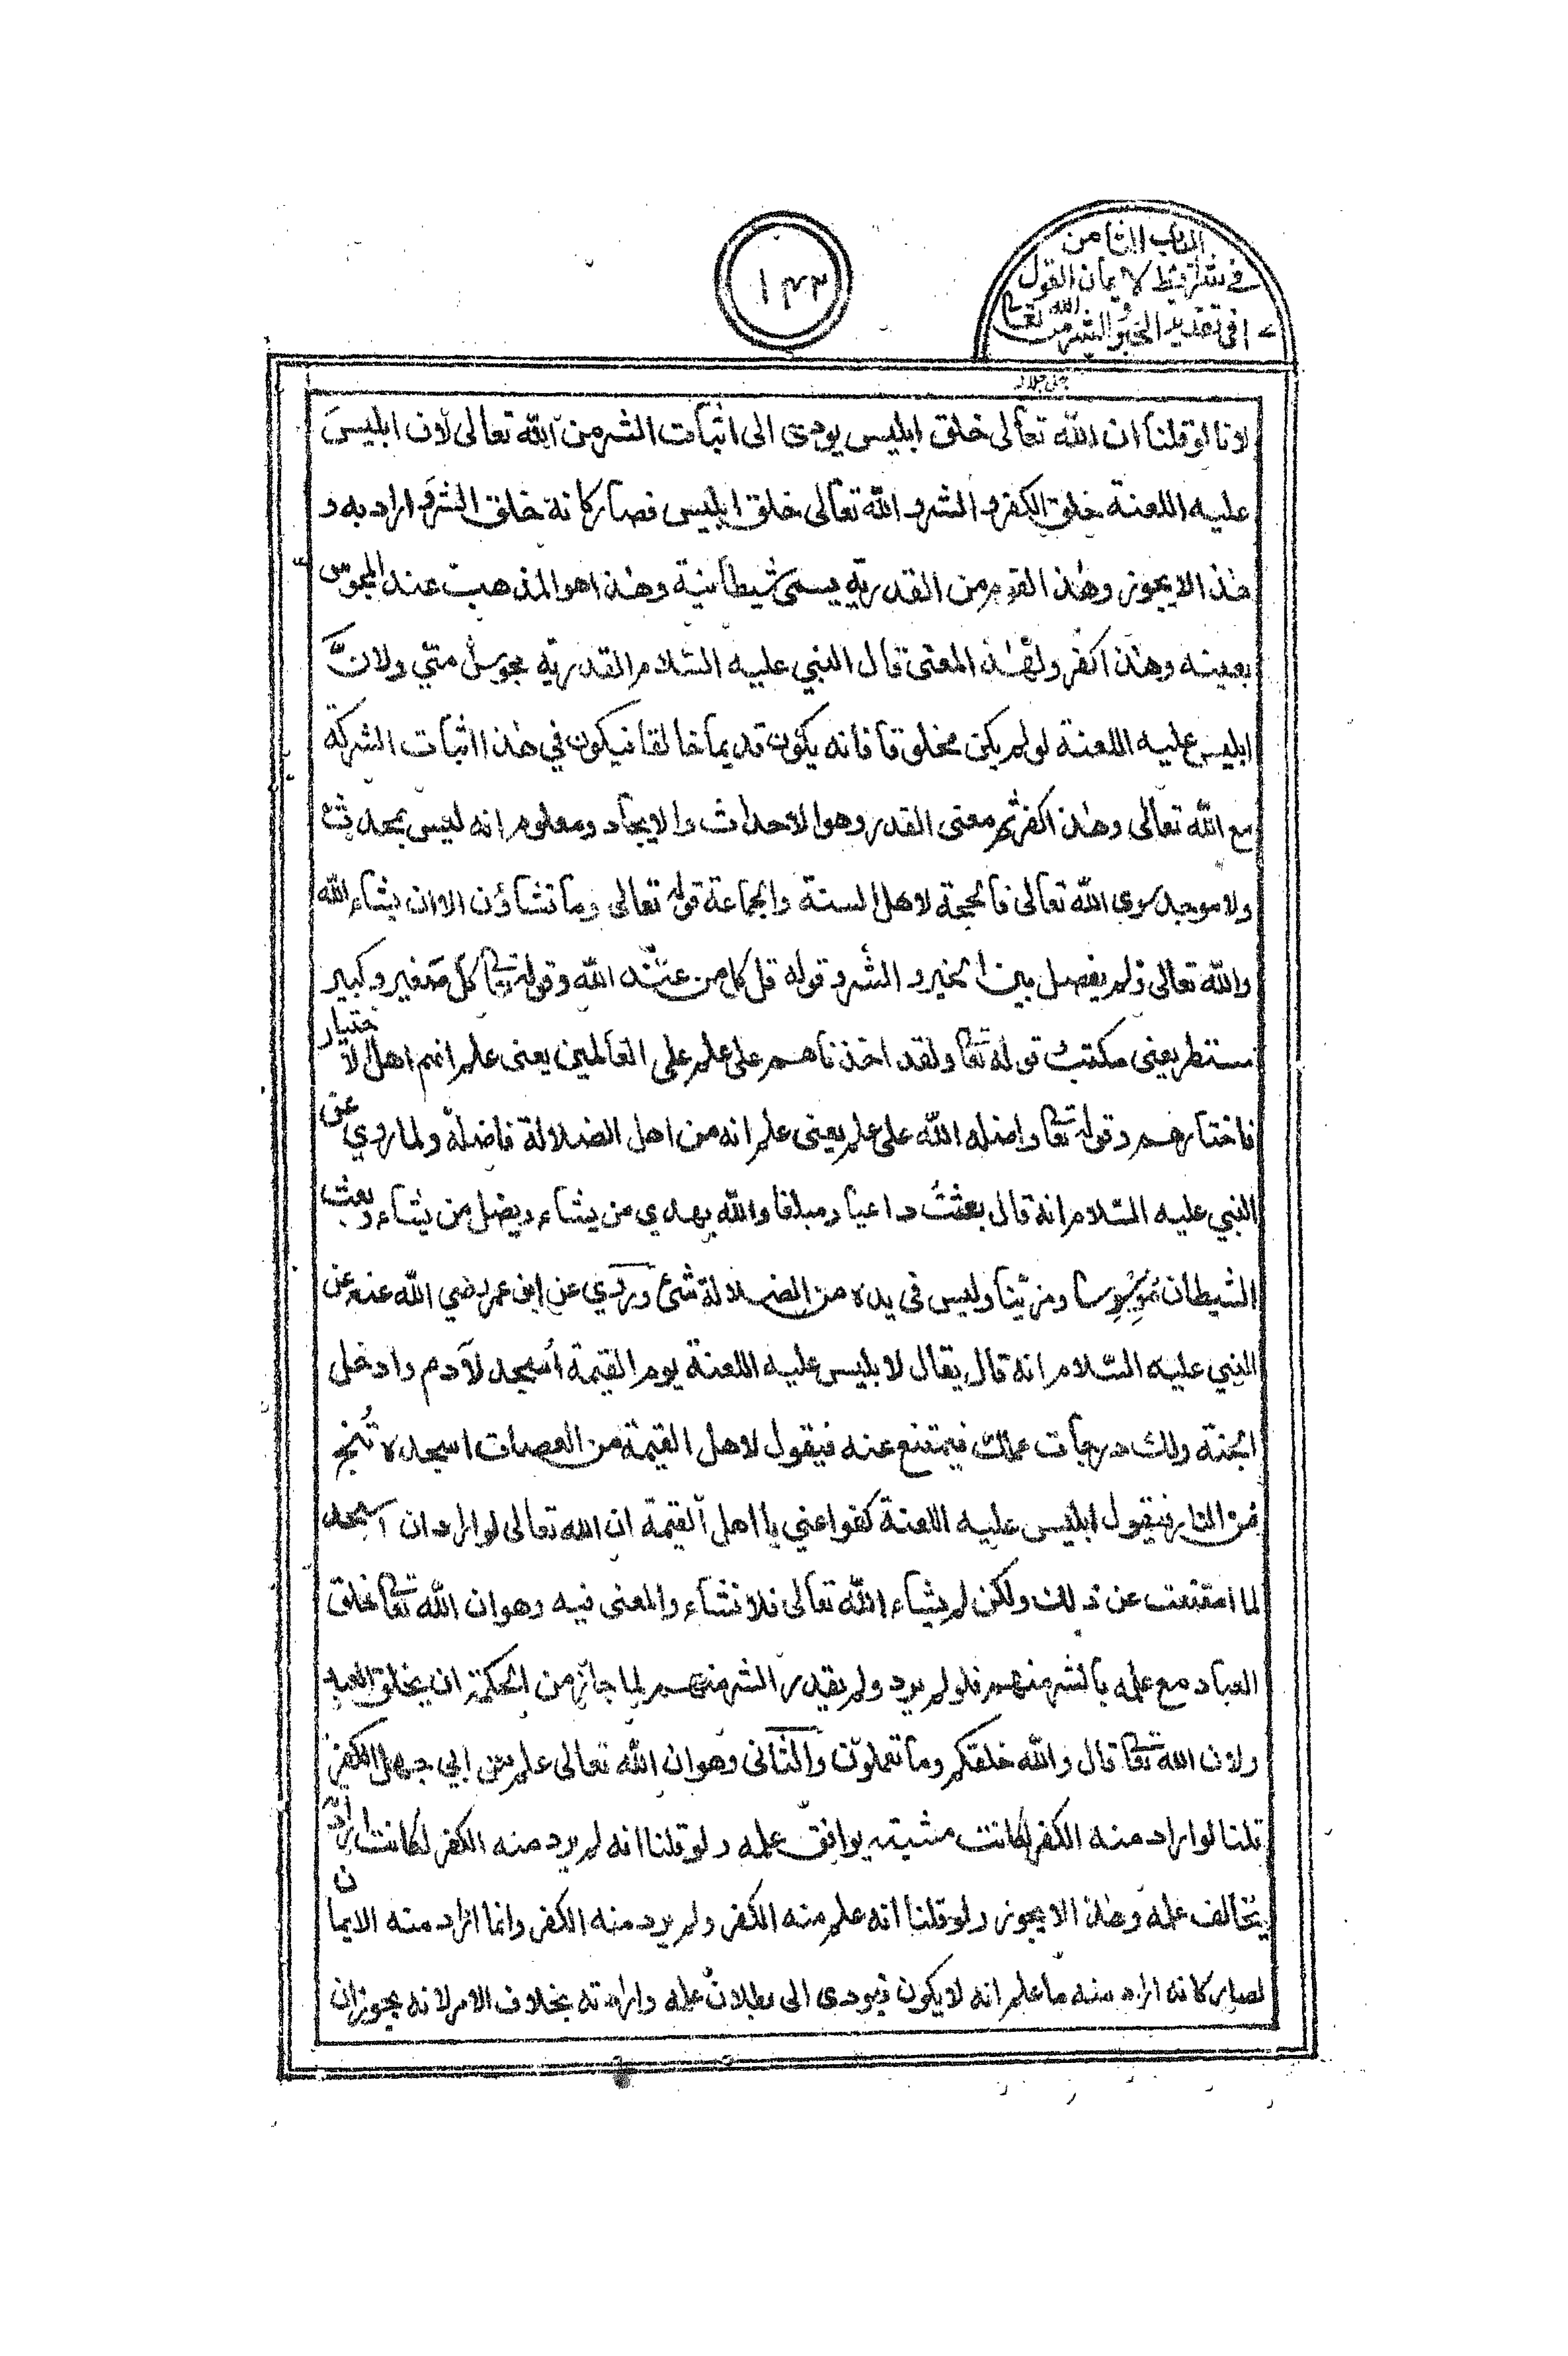 الباب الثامن
في شرائط الايمان القول
في تقدير الخير والشر من الله تعالى
١٤٣
جل جلاله
لانا لو قلنا ان الله تعالى خلق ابليس يودى الى اثبات الشر من الله تعالى لان ابليس
عليه اللعنة خلق الكفر و الشر و الله تعالى خلق ابليس فصار كانه خلق الشر و اراد به و
هذا لا يجوز وهذا القوم من القدرية يسمى شيطانية وهذا هو المذهب عند المجوس
بعينه وهذا كفر ولهذا المعنى قال النبي عليه السلام القدرية مجوس امتي ولانَّ
ابليس عليه اللعنة لو لم يكن مخلوقا فانه يكون قديما خالقا فيكون في هذا اثبات الشركة
مع الله تعالى وهذا كفر ثم معنى القدر وهو الاحداث والايجاد ومعلوم انه ليس بمحدث
ولا موجد سوى الله تعالى فالحجة لاهل السنة والجماعة قوله تعالى وما تشاؤن الا ان يشاء الله
والله تعالى لم يفصل بين الخير و الشر و قوله قل كل من عند الله وقوله تعا كل صغير و كبير
مستطر يعنى مكتب قوله تعا ولقد اخذناهم على علم على العالمين يعنى علم انهم اهل الاختيار
فاختارهم وقوله تعا واضله الله على علم يعنى علم انه من اهل الضلالة فاضله ولما روي عن
النبي عليه السلام انه قال بعثت داعيا ومبلغا والله يهدي من يشاء ويضل من يشاء وبعث
الشيطان موسوسا ومزينا وليس فى يده من الضلالة شئ وروي عن ابن عمر رضي الله عنه عن
النبي عليه السلام انه قال يقال لابليس عليه اللعنة يوم القيمة اُسجد لآدم وادخل
الجنة ولك درجات عملك فيمتنع عنه فيقول لاهل القيمة من العصات اسجده تُنج
من النار فيقول ابليس عليه اللعنة كفوا عني يا اهل القيمة ان الله تعالى لو اراد ان اسجد
لما امتنعت عن ذلك ولكن لم يشاء الله تعالى فلا نشاء والمعنى فيه وهو ان الله تعا خلق
العباد مع علمه بالشر منهم فلو لم يرد ولم يقدر الشر منهم لما جاز من الحكمة ان يخلق العبد
ولان الله تعا قال والله خلقكم وما تعملون والثانى وهو ان الله تعالى علم من ابي جهل الكفر
قلنا لو اراد منه الكفر لكانت مشيته يوافق علمه ولو قلنا انه لم يرد منه الكفر لكانت ارادته
يتخالف علمه وهذا لا يجوز ولو قلنا انه علم منه الكفر ولم يرد منه الكفر وانما اراد منه الايمان
لصار كانه اراد منه ما علم انه لا يكون فيودى الى بطلان علمه وارادته بخلاف الامر لانه يجوز ان